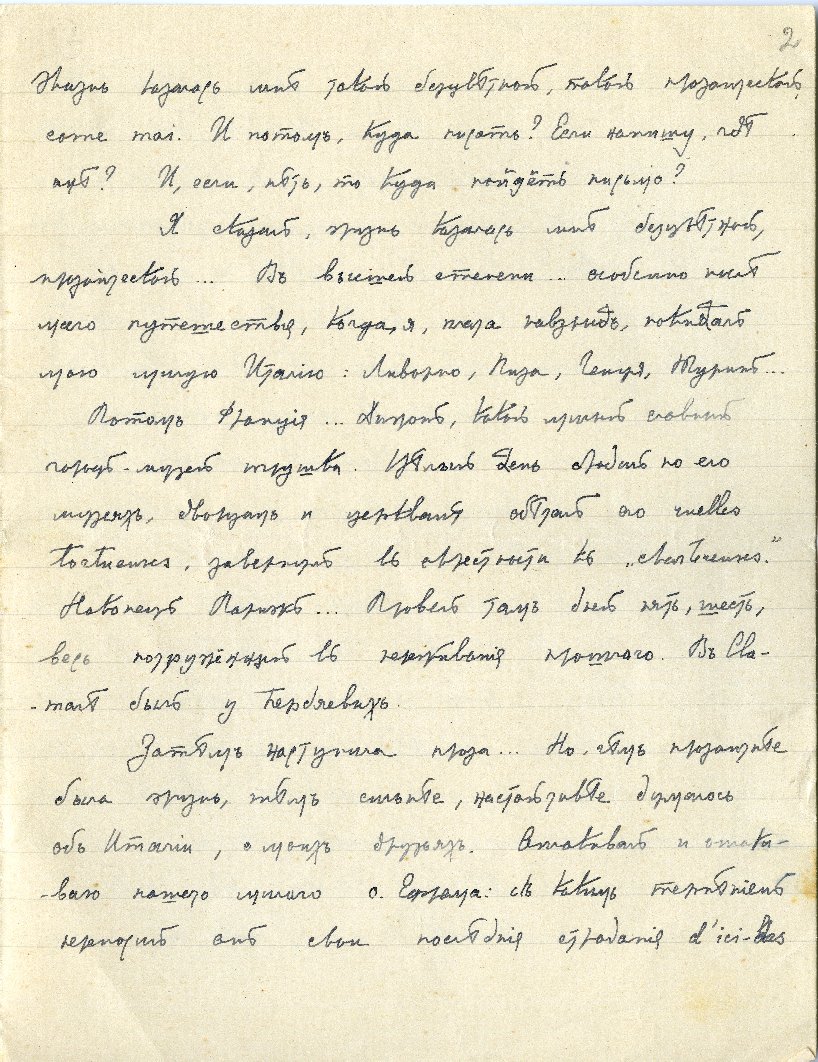 2
Жизнь казалась мнѣ такой безцвѣтной, такой прозаической,
come mai. И потомъ, куда писать? Если напишу, гдѣ
онѣ? И, если, нѣтъ, то куда пойдётъ письмо?
Я сказалъ, жизнь казалась мнѣ безцвѣтной,
прозаической... Въ высшей степени... особенно послѣ
моего путешествія, когда, я, плача навзрыдъ, покидалъ
мою милую Италію: Ливорно, Пиза, Генуя, Туринъ...
Потомъ Франція... Дижонъ, какой милый славный
городъ-музей игрушка. Цѣлый день бродилъ по его
музеямъ, дворцамъ и церквамъ обѣгалъ его ruelles
tortueuses, завернулъ въ окрестности къ „chartreuses."
Наконецъ Парижъ... Провелъ тамъ дней пять, шесть,
весь погружённый въ переживанія прошлаго. Въ Cla-
-martѣ былъ у Бердяевыхъ.
Затѣмъ наступила проза... Но, чѣмъ прозаичнѣе
была жизнь, тѣмъ сильнѣе, настойчивѣе думалось
объ Италіи, о моихъ друзьяхъ. Оплакивалъ и оплаки-
-ваю нашего милаго о. Ефрема: съ какимъ терпѣніемъ
переносилъ онъ свои послѣднія страданія d'ici-bas